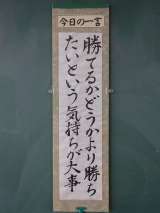 今日の一言
勝てるかどうかより勝ち
たいという気持ちが大事